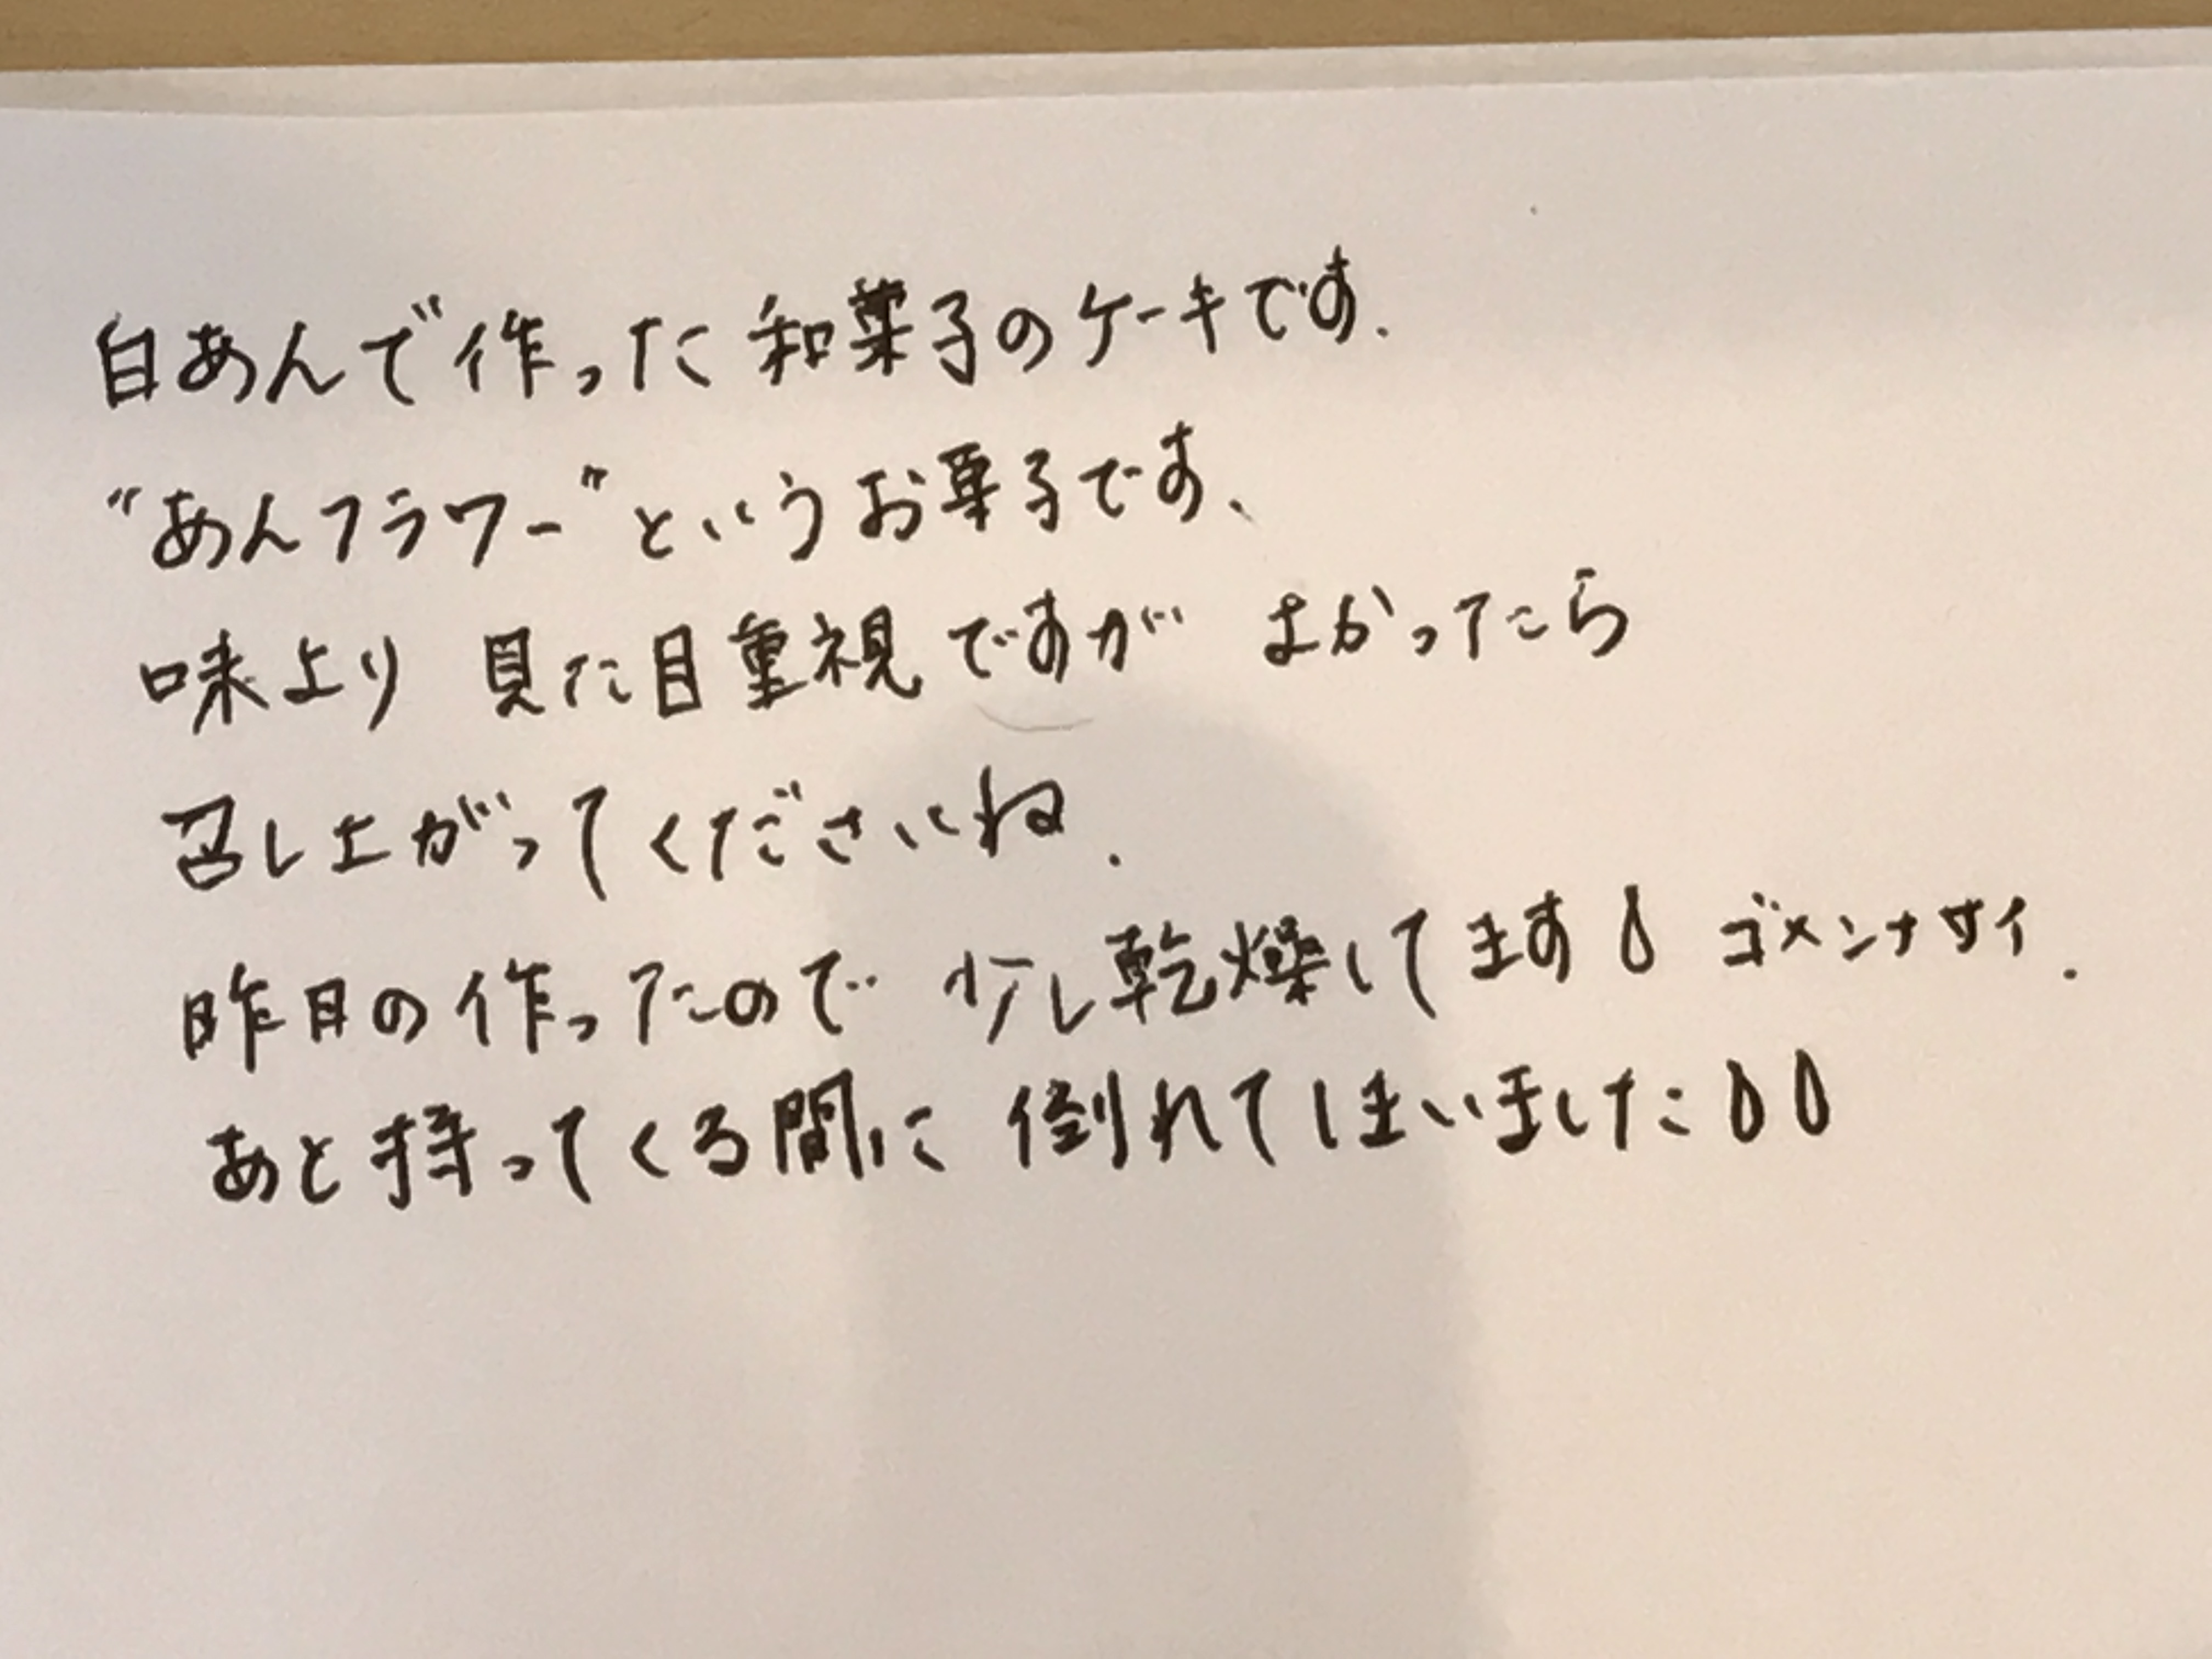 白あんで作った和菓子のケーキです.
"あんフラワー"というお菓子です、
味より 見た目重視ですが よかったら
召し上がってくださいね.
昨日の作ったので 少し乾燥してます💧 ゴメンナサイ.
あと持ってくる間に 倒れてしまいました💧💧